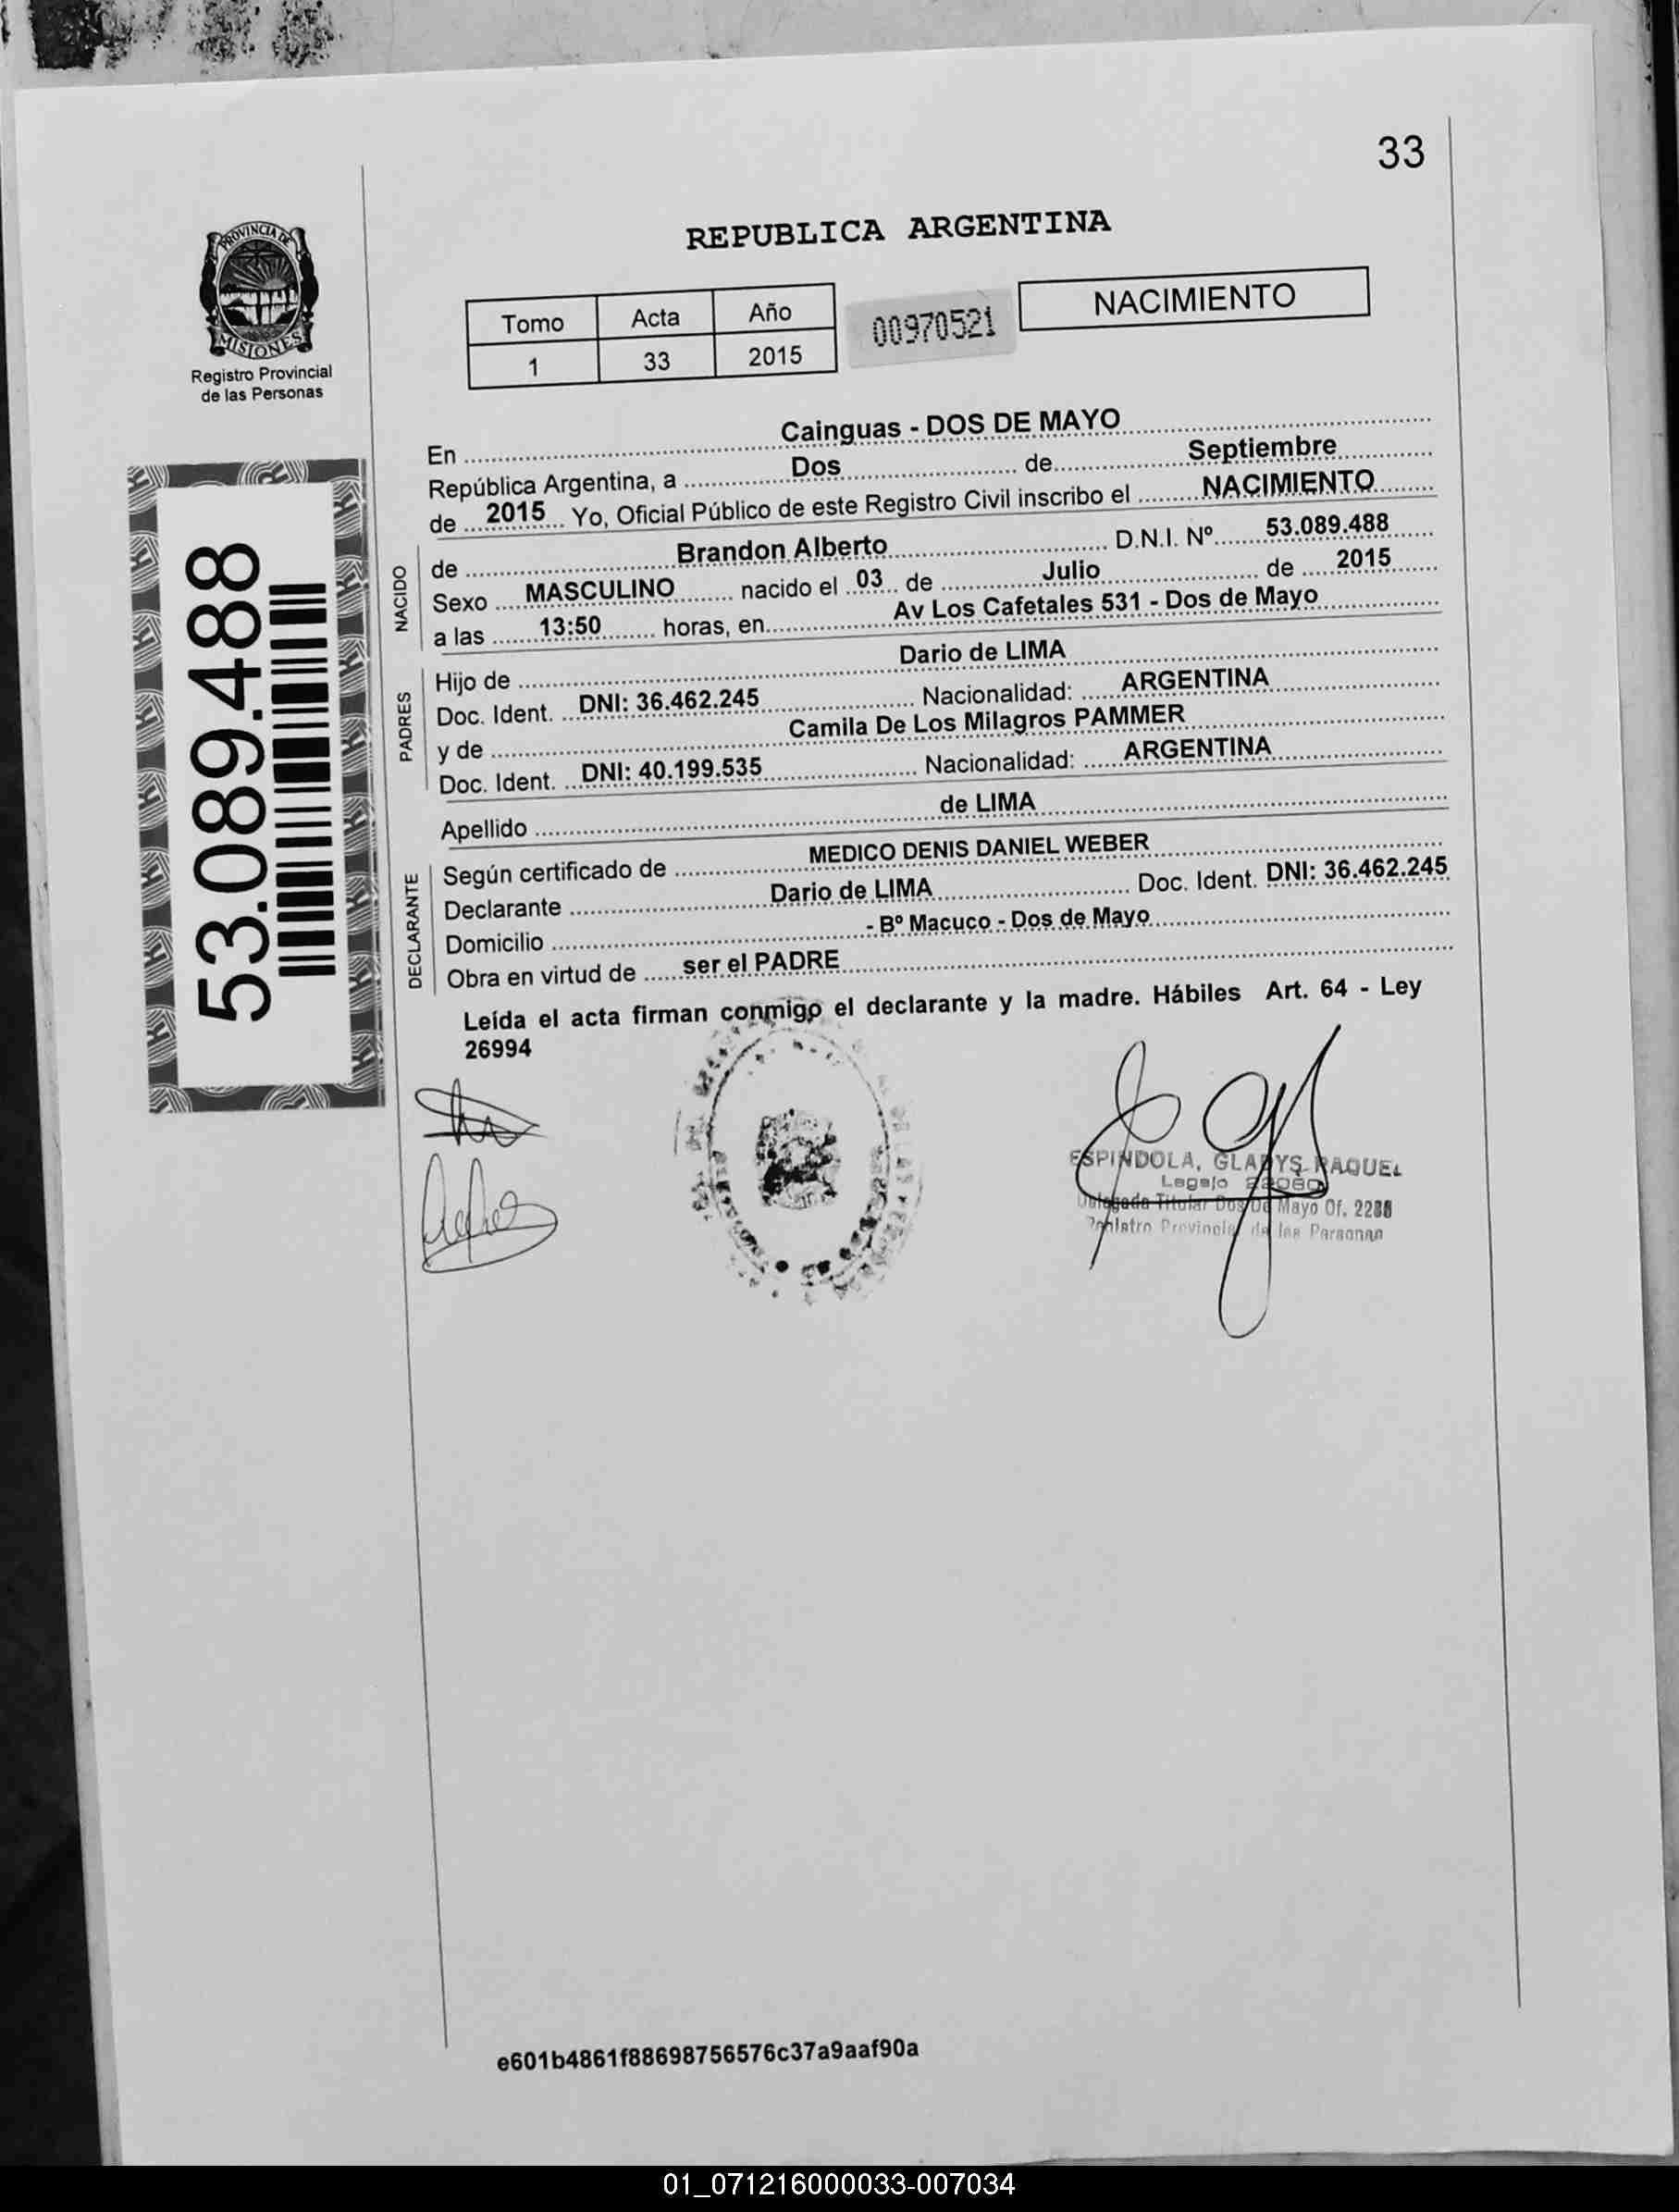 33
PROVINCIA DE
MISIONES
Registro Provincial
de las Personas
REPUBLICA ARGENTINA
Tomo Acta Año
1 33 2015
00970521
NACIMIENTO
53.089.488
En Cainguas - DOS DE MAYO
República Argentina, a Dos de Septiembre
de 2015 Yo, Oficial Público de este Registro Civil inscribo el NACIMIENTO
NACIDO
de Brandon Alberto D.N.I. Nº 53.089.488
Sexo MASCULINO nacido el 03 de Julio de 2015
a las 13:50 horas, en Av Los Cafetales 531 - Dos de Mayo
PADRES
Hijo de Dario de LIMA
Doc. Ident. DNI: 36.462.245 Nacionalidad: ARGENTINA
y de Camila De Los Milagros PAMMER
Doc. Ident. DNI: 40.199.535 Nacionalidad: ARGENTINA
Apellido de LIMA
DECLARANTE
Según certificado de MEDICO DENIS DANIEL WEBER
Declarante Dario de LIMA Doc. Ident. DNI: 36.462.245
Domicilio - Bº Macuco - Dos de Mayo
Obra en virtud de ser el PADRE
Leída el acta firman conmigo el declarante y la madre. Hábiles Art. 64 - Ley
26994
ESPINDOLA, GLADYS RAQUEL
Legajo
Delegada Titular Dos De Mayo Of. 2288
Registro Provincial de las Personas
e601b4861f88698756576c37a9aaf90a
01_071216000033-007034